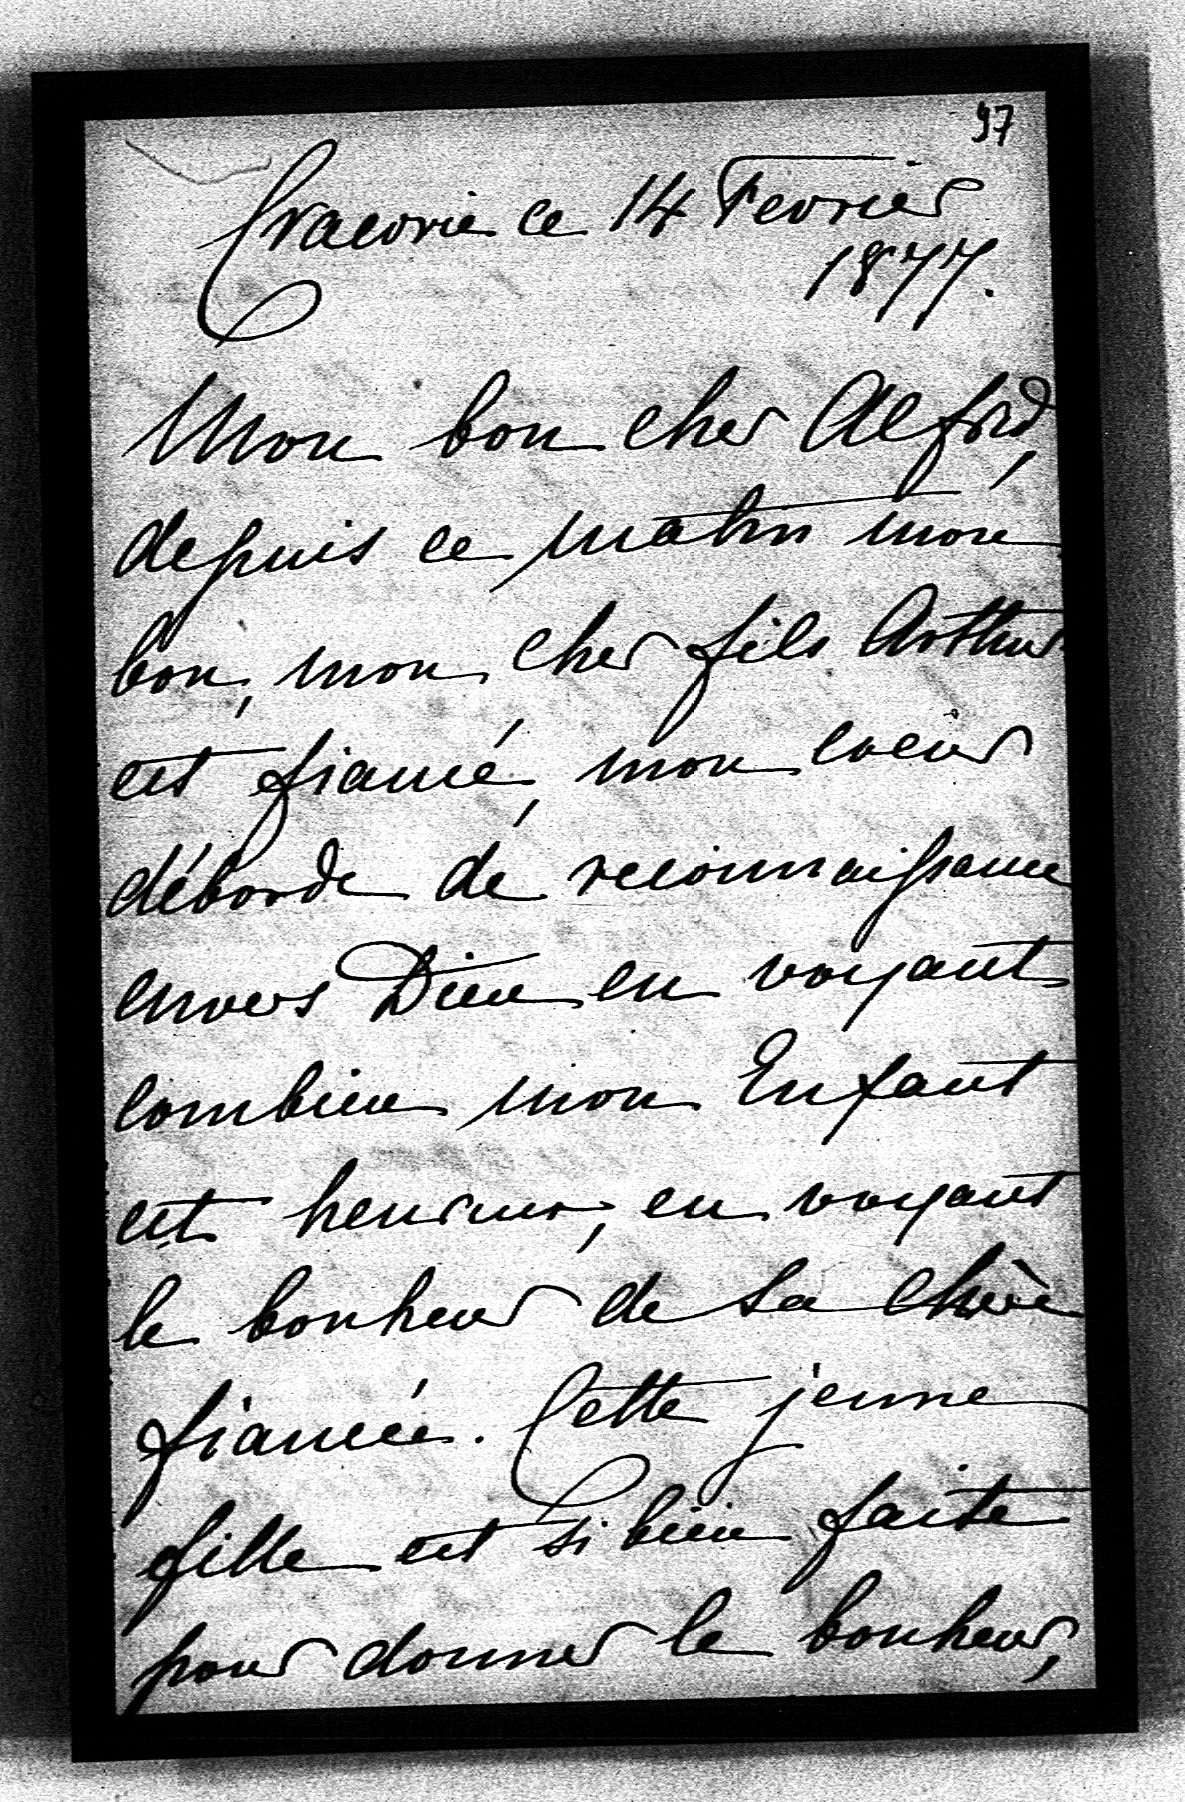 97
Cracovie ce 14 Fevrier
1877.
Mon bon cher Alfred,
depuis ce matin mon
bon, mon cher fils Arthur
est fiancé, mon coeur
déborde de reconnaissance
envers Dieu en voyant
combien mon Enfant
est heureux, en voyant
le bonheur de sa chère
fiancée. Cette jeune
fille est si bien faite
pour donner le bonheur,